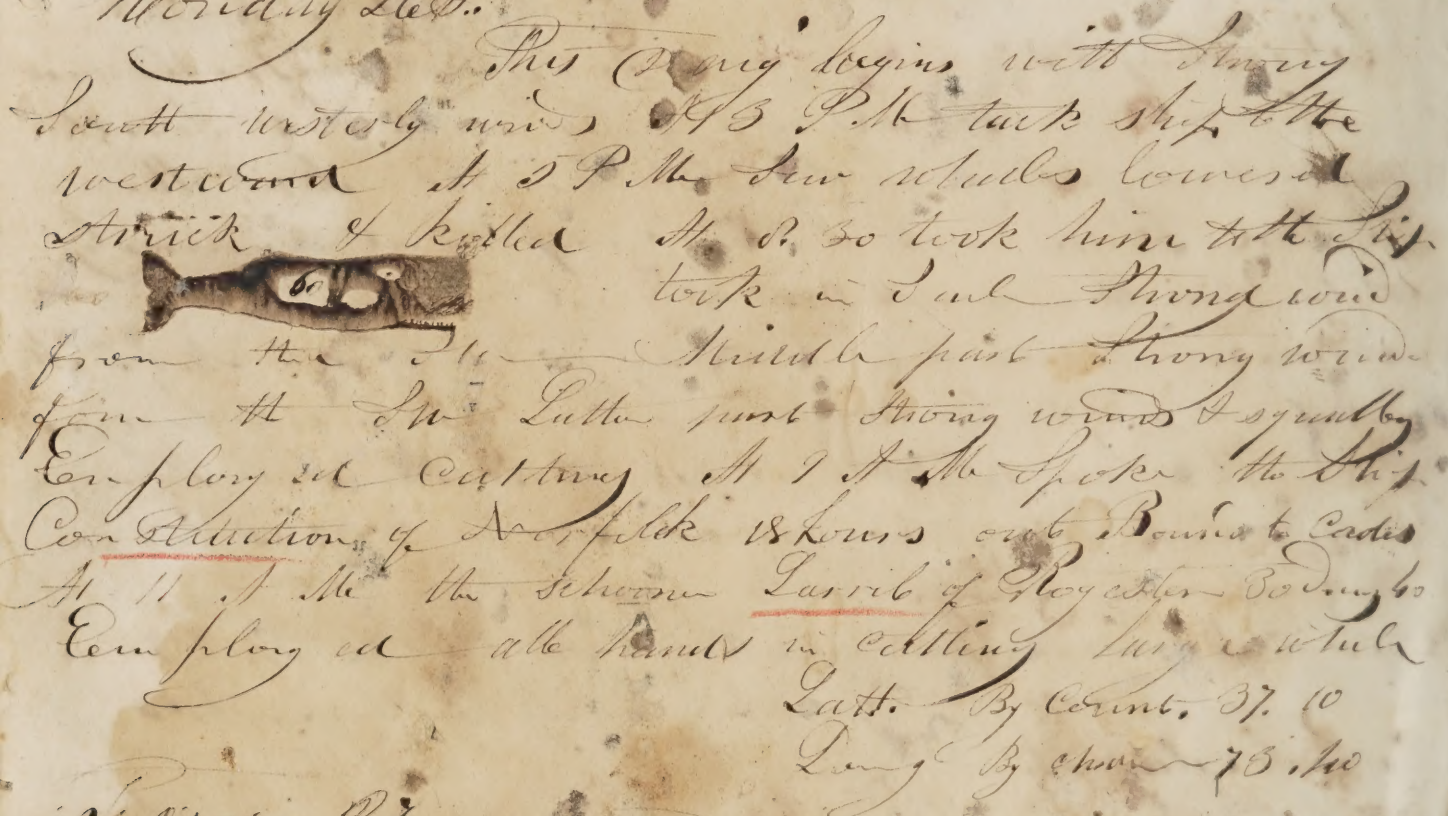 Monday 26th..
This Day begins with Strong
South westerly winds At 3 P M tack ship to the
westward At 5 P M Saw whales lowered
struck & killed At 8.30 took him to the Ship
60 took in Sail Strong wind
from the SW Middle part Strong wind
from the SW Latter part Strong winds & squally
Employed cutting At 9 A M Spoke the Ship
Constitution of Norfolk 18 hours out Bound to Cadis
At 11 A M the schooner of
Employed all hands in cutting large whale
Latt. By Count. 37. 10
Long By chron 73.40